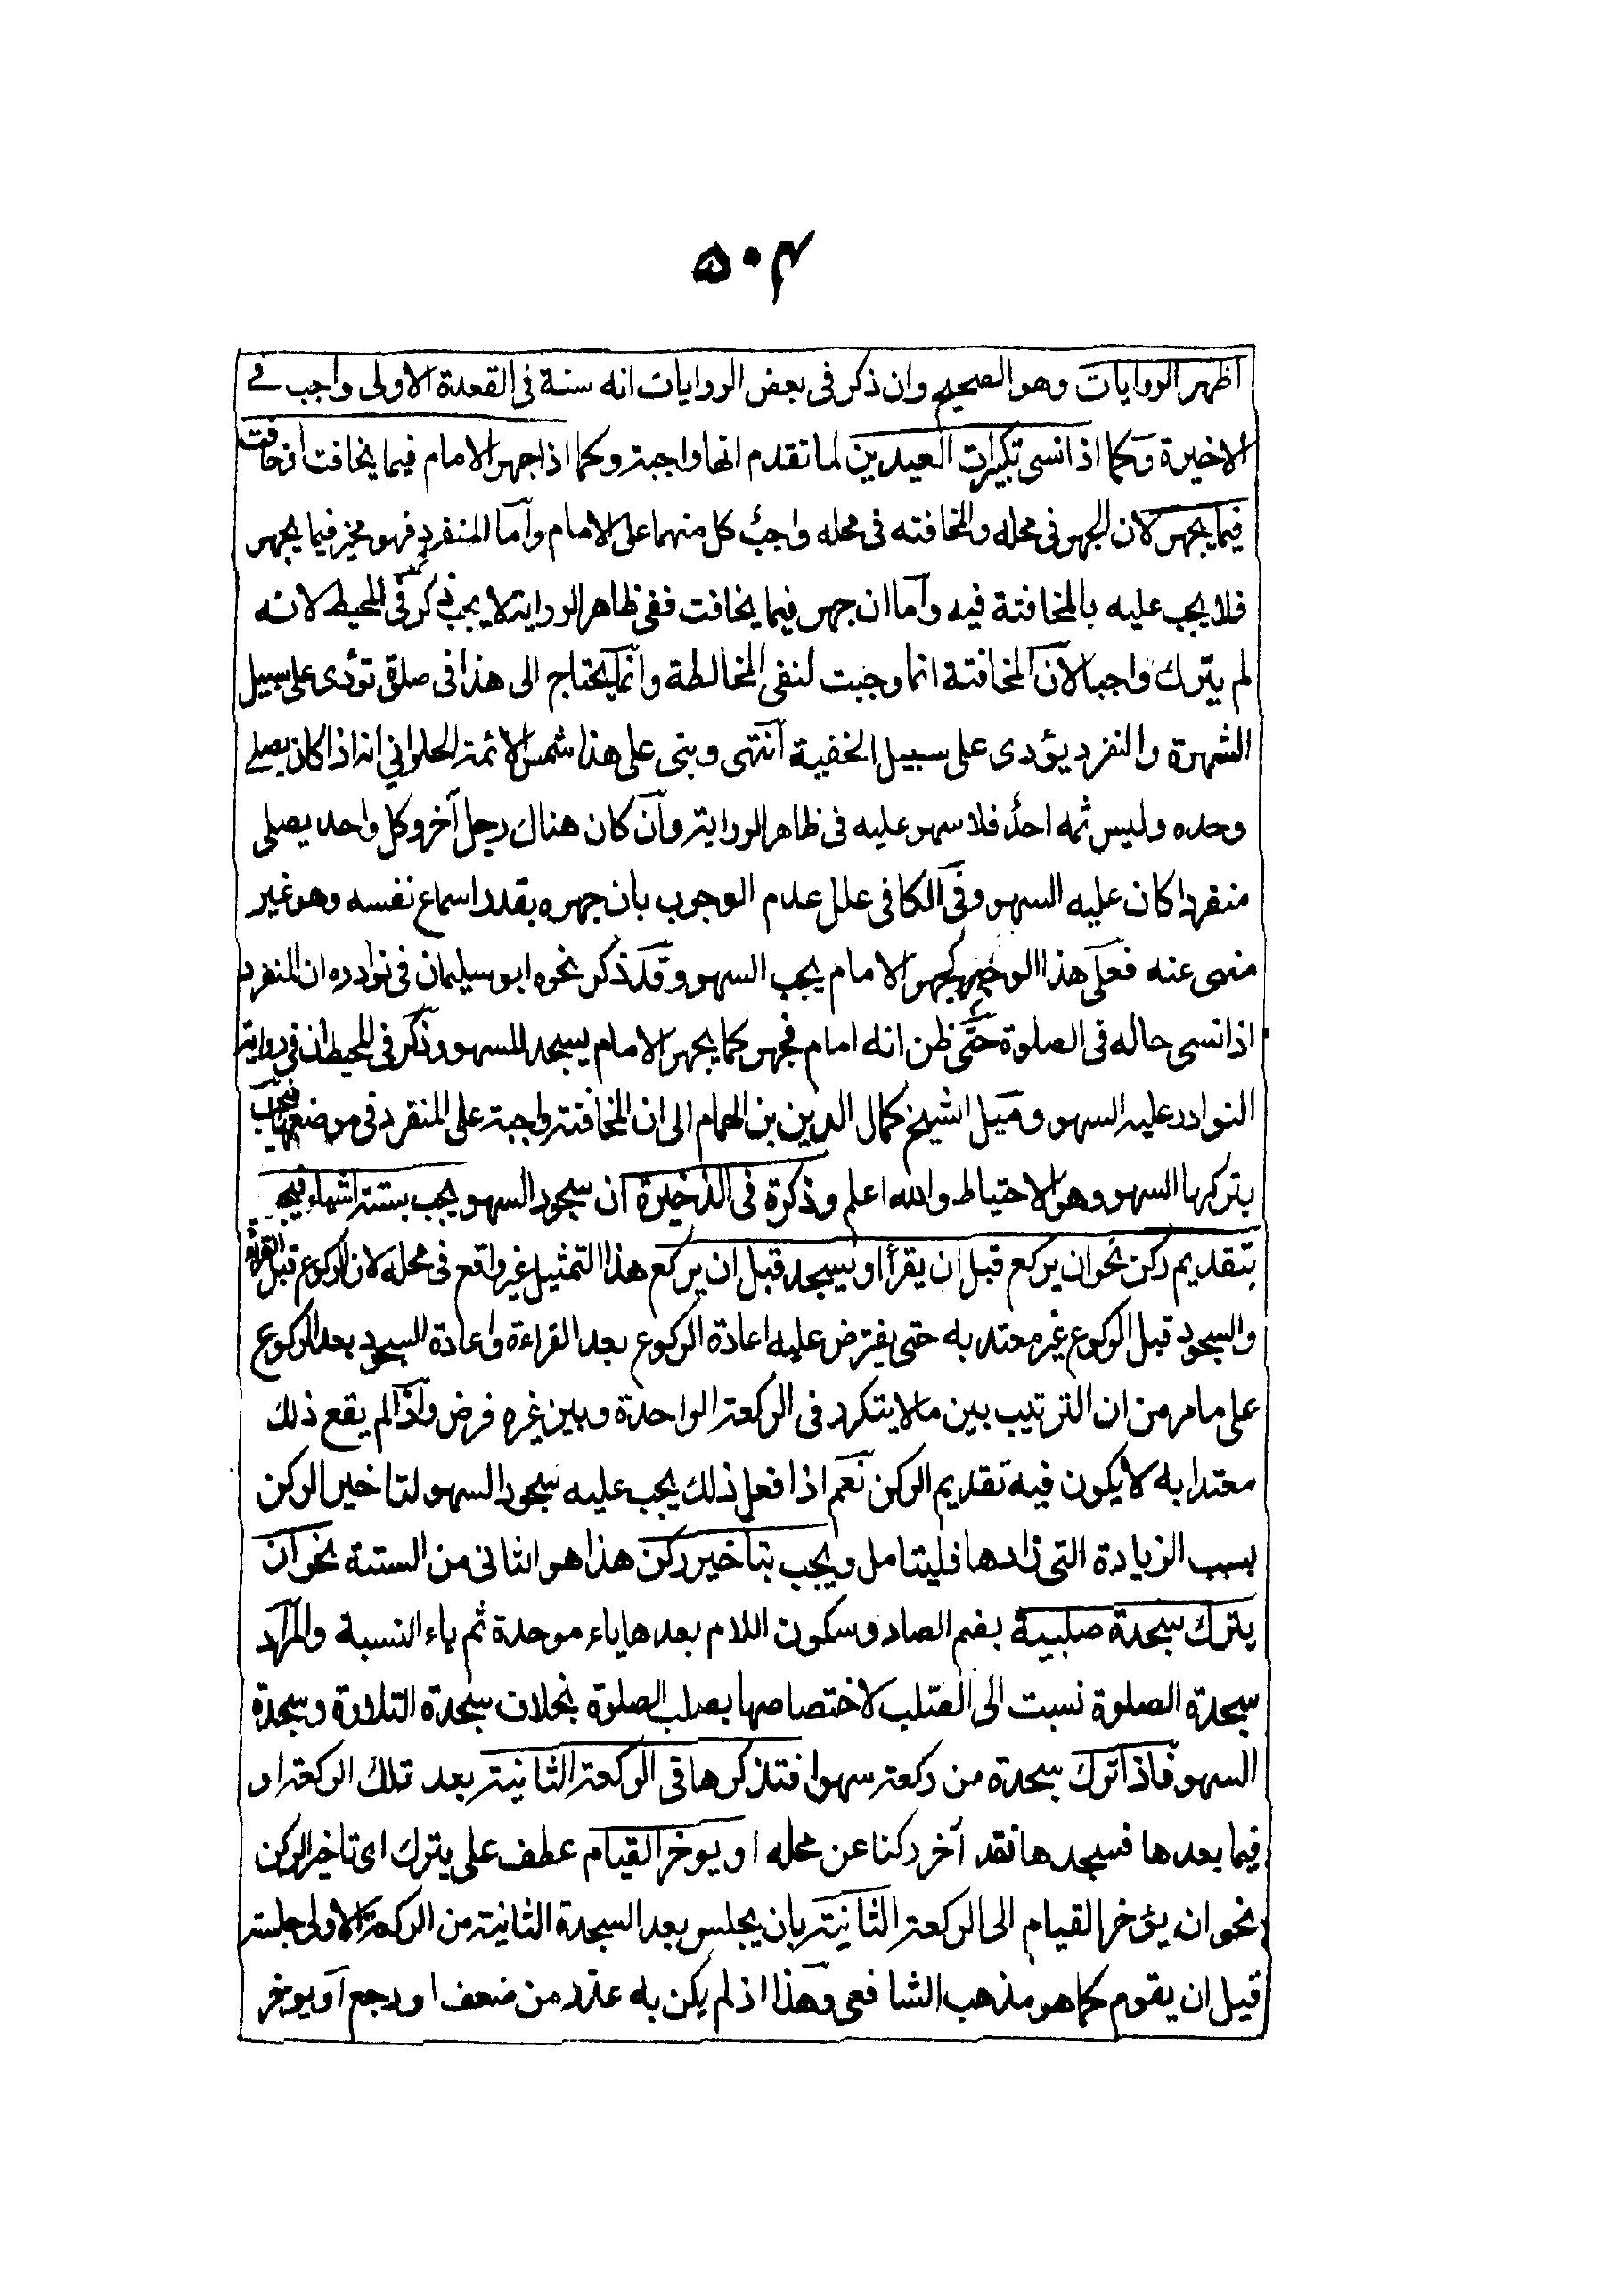 ۵۰۴
اظهر الروايات وهو الصحيح وان ذكر فى بعض الروايات انه سنة فى القعدة الاولى واجب فے
الاخيرة وكما اذا نسى تكبيرات العيدين لما تقدم انها واجبة وكما اذا جهر الامام فيما يخافت او خافت
فيما يجهر لان الجهر فى محله والمخافته فى محله واجب كل منهما على الامام واما المنفرد فهو مخير فيما يجهر
فلا يجب عليه بالمخافتة فيه واما ان جهر فيما يخافت ففى ظاهر الرواية لا يجب ذكر فى المحيط لانه
لم يترك واجبا لان المخافتة انما وجبت لنفى المخالطة وانما يحتاج الى هذا فى صلوة تؤدى على سبيل
الشهرة والنفرد يؤدى على سبيل الخفية انتهى وبنى على هذا شمس الائمة الحلوانى انه اذا كان يصلے
وحده وليس ثمه احد فلا سهو عليه فى ظاهر الرواية وان كان هناك رجل آخر وكل واحد يصلى
منفردا كان عليه السهو وفى الكافى علل عدم الوجوب بان جهره بقدر اسماع نفسه وهو غير
منهى عنه فعلى هذا لو جهر كجهر الامام يجب السهو وقد ذكر نحوه ابو سليمان فى نوادره ان المنفرد
اذا نسى حاله فى الصلوة حتى ظن انه امام فجهر كما يجهر الامام يسجد للسهو وذكر فى المحيط ان فى رواية
النوادر عليه السهو وميل الشيخ كمال الدين بن الهمام الى ان المخافتة واجبة على المنفرد فى موضعها فيجب
بتركها السهو وهو الاحتياط والله اعلم وذكرة فى الذخيرة ان سجود السهو يجب بستة اشياء فيجب
بتقديم ركن نحو ان يركع قبل ان يقرأ او يسجد قبل ان يركع هذا التمثيل غير واقع فى محله لان الركوع قبل القراءة
والسجود قبل الركوع غير معتد به حتى يفترض عليه اعادة الركوع بعد القراءة واعادة السجود بعد الركوع
على ما مر من ان الترتيب بين ما لا يتكرر فى الركعة الواحدة وبين غيره فرض واذا لم يقع ذلك
معتدا به لا يكون فيه تقديم الركن نعم اذا فعل ذلك يجب عليه سجود السهو لتاخير الركن
بسبب الزيادة التى زادها فليتامل ويجب بتأخير ركن هذا هو الثانى من الستة نحو ان
يترك سجدة صلبية بضم الصاد وسكون اللام بعدها باء موحدة ثم ياء النسبة والمراد
سجدة الصلوة نسبت الى الصلب لاختصاصها بصلب الصلوة بخلاف سجدة التلاوة وسجدة
السهو فاذا ترك سجدة من ركعة سهوا فتذكرها فى الركعة الثانية بعد تلك الركعة او
فيما بعدها فسجدها فقد آخر ركنا عن محله او يوخر القيام عطف على يترك اى تاخير الركن
نحو ان يؤخر القيام الى الركعة الثانية بان يجلس بعد السجدة الثانية من الركعة الاولى جلسة
قبل ان يقوم كما هو مذهب الشافعى وهذا اذ لم يكن به عذر من ضعف او وجع او يوخر